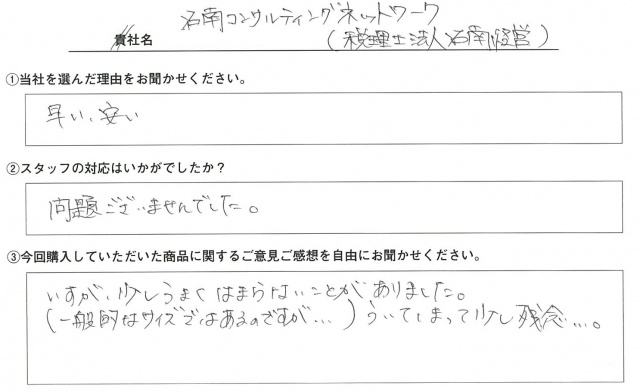 貴社名 石南コンサルティングネットワーク
(税理士法人石南経営)
①当社を選んだ理由をお聞かせください。
早い、安い
②スタッフの対応はいかがでしたか？
問題ございませんでした。
③今回購入していただいた商品に関するご意見ご感想を自由にお聞かせください。
いすが、少しうまくはまらないことがありました。
(一般的なサイズではあるのですが…)ういてしまって少し残念…。